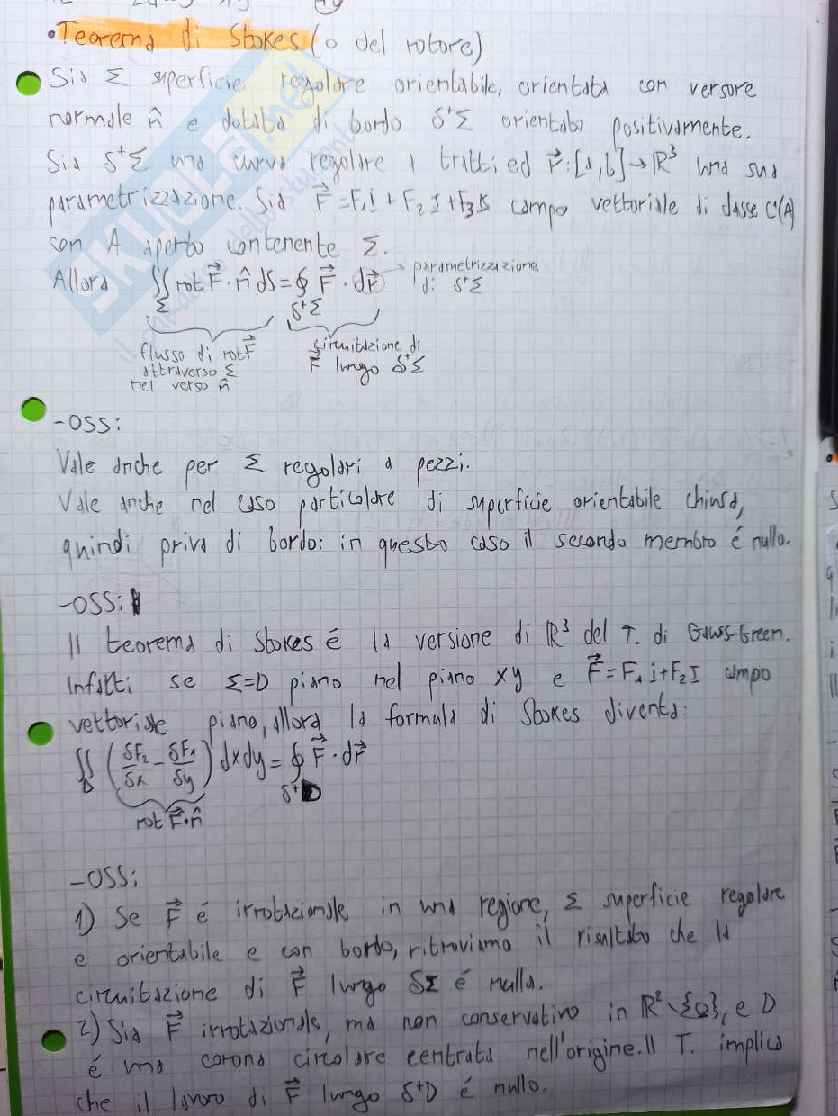 •Teorema di Stokes (o del rotore)
Sia Σ superficie regolare orientabile, orientata con versore
normale n̂ e dotata di bordo δ⁺Σ orientato positivamente.
Sia δ⁺Σ una curva regolare a tratti ed r⃗:[a,b]→ℝ³ una sua
parametrizzazione. Sia F⃗=F₁i+F₂j+F₃k campo vettoriale di classe C¹(A)
con A aperto contenente Σ.
Allora ∬_Σ rot F⃗·n̂ dS=∮_δ⁺Σ F⃗·dr⃗ → parametrizzazione
di δ⁺Σ
flusso di rot F⃗
attraverso Σ
nel verso n̂
circuitazione di
F⃗ lungo δ⁺Σ
-OSS:
Vale anche per Σ regolari a pezzi.
Vale anche nel caso particolare di superficie orientabile chiusa,
quindi priva di bordo: in questo caso il secondo membro é nullo.
-OSS:
Il teorema di Stokes é la versione di ℝ³ del T. di Gauss-Green.
Infatti se Σ=D piano nel piano xy e F⃗=F₁i+F₂j campo
vettoriale piano, allora la formula di Stokes diventa:
∬_D (δF₂/δx - δF₁/δy) dxdy=∮_δ⁺D F⃗·dr⃗
rot F⃗·n̂
-OSS:
1) Se F⃗ é irrotazionale in una regione, Σ superficie regolare
e orientabile e con bordo, ritroviamo il risultato che la
circuitazione di F⃗ lungo δΣ é nulla.
2) Sia F⃗ irrotazionale, ma non conservativo in ℝ²\{0}, e D
é una corona circolare centrata nell'origine. Il T. implica
che il lavoro di F⃗ lungo δ⁺D é nullo.